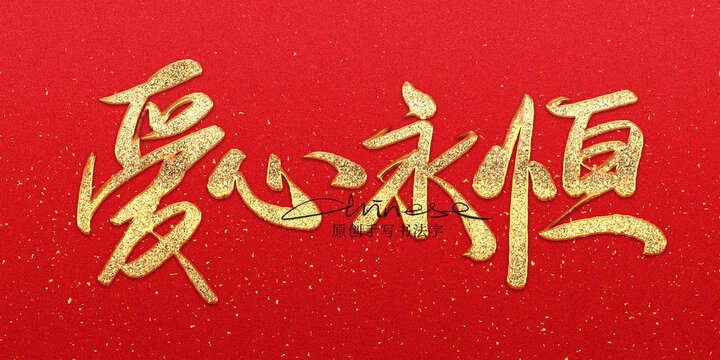 爱心永恒
Chinese
原创手写书法字